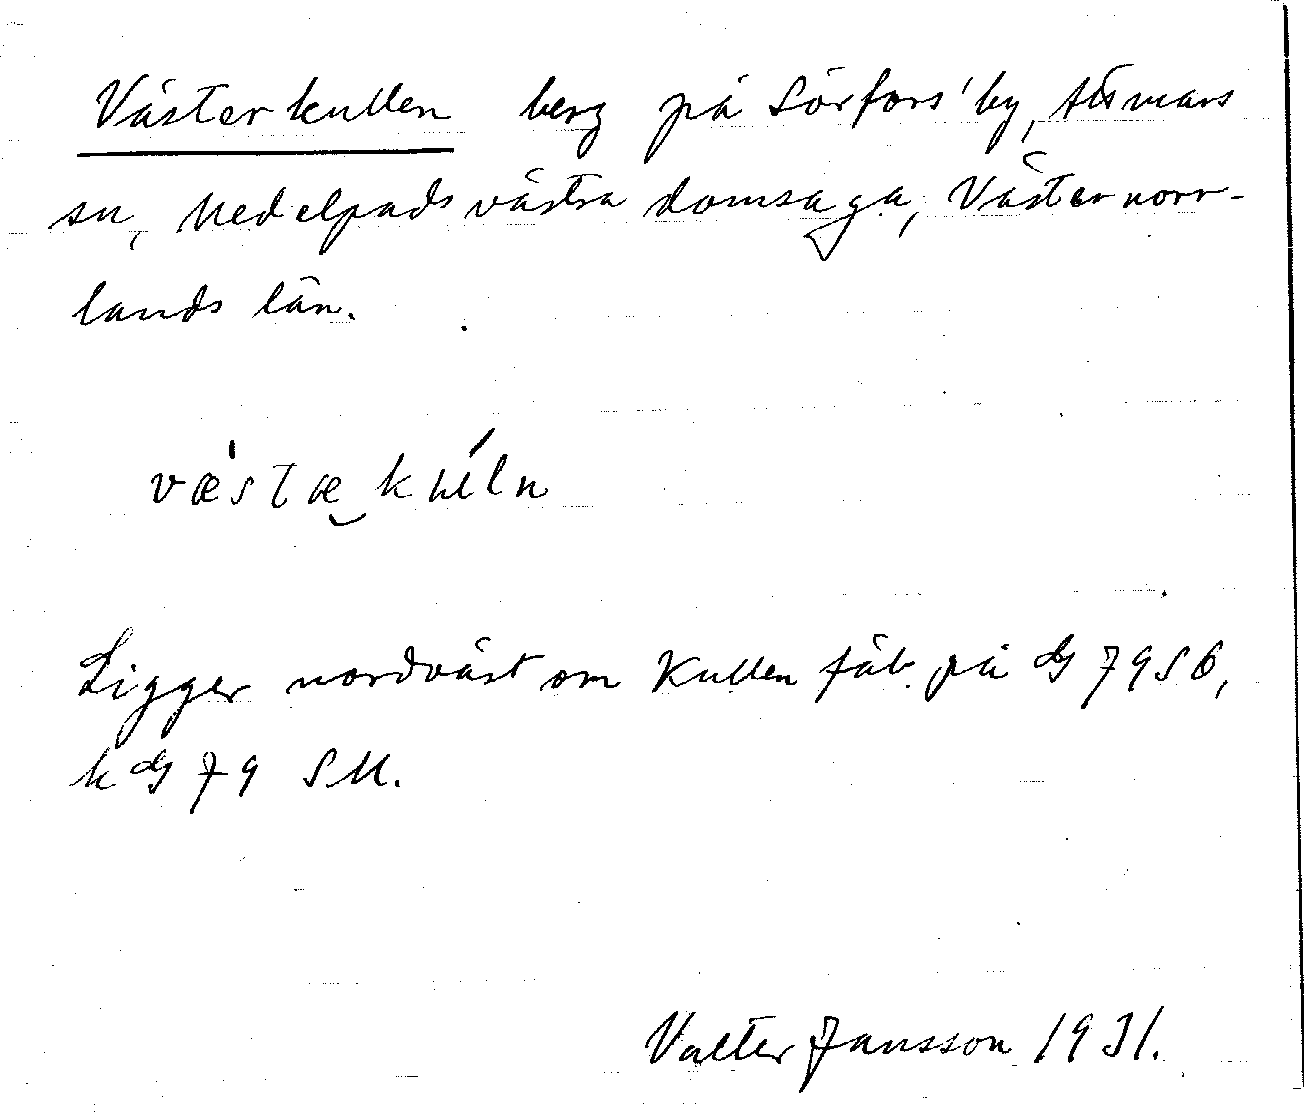 Västerkullen berg på Sörfors' by, Attmars
sn, Medelpads västra domsaga, Västernorr-
lands län.
væ̍stæ̮kúln
Ligger nordväst om Kullen fäb. på dg 79 S6,
k dg 79 SM.
Valter Jansson 1931.